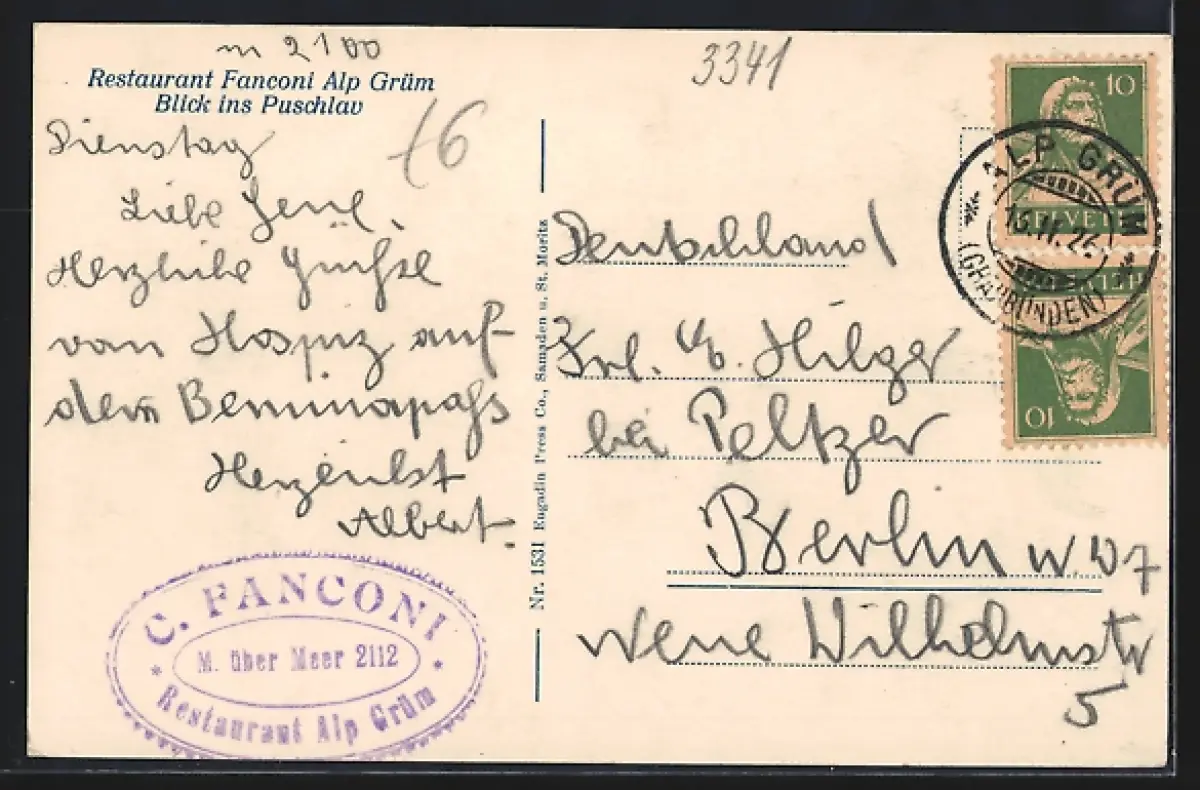 m 2100
Restaurant Fanconi Alp Grüm
Blick ins Puschlav
Dienstag
Liebe
Herzliche Grüsse
vom Hospiz auf
dem Berninapass
Herzlichst
Albert.
C. FANCONI
M. über Meer 2112
Restaurant Alp Grüm
Nr. 1531 Engadin Press Co., Samaden u. St. Moritz
3341
10
HELVETIA
ALP GRÜM
(GRAUBÜNDEN)
HELVETIA
10
Deutschland
Frl. E. Hilger
bei Peltzer
Berlin W
Neue Wilhelmstr
5